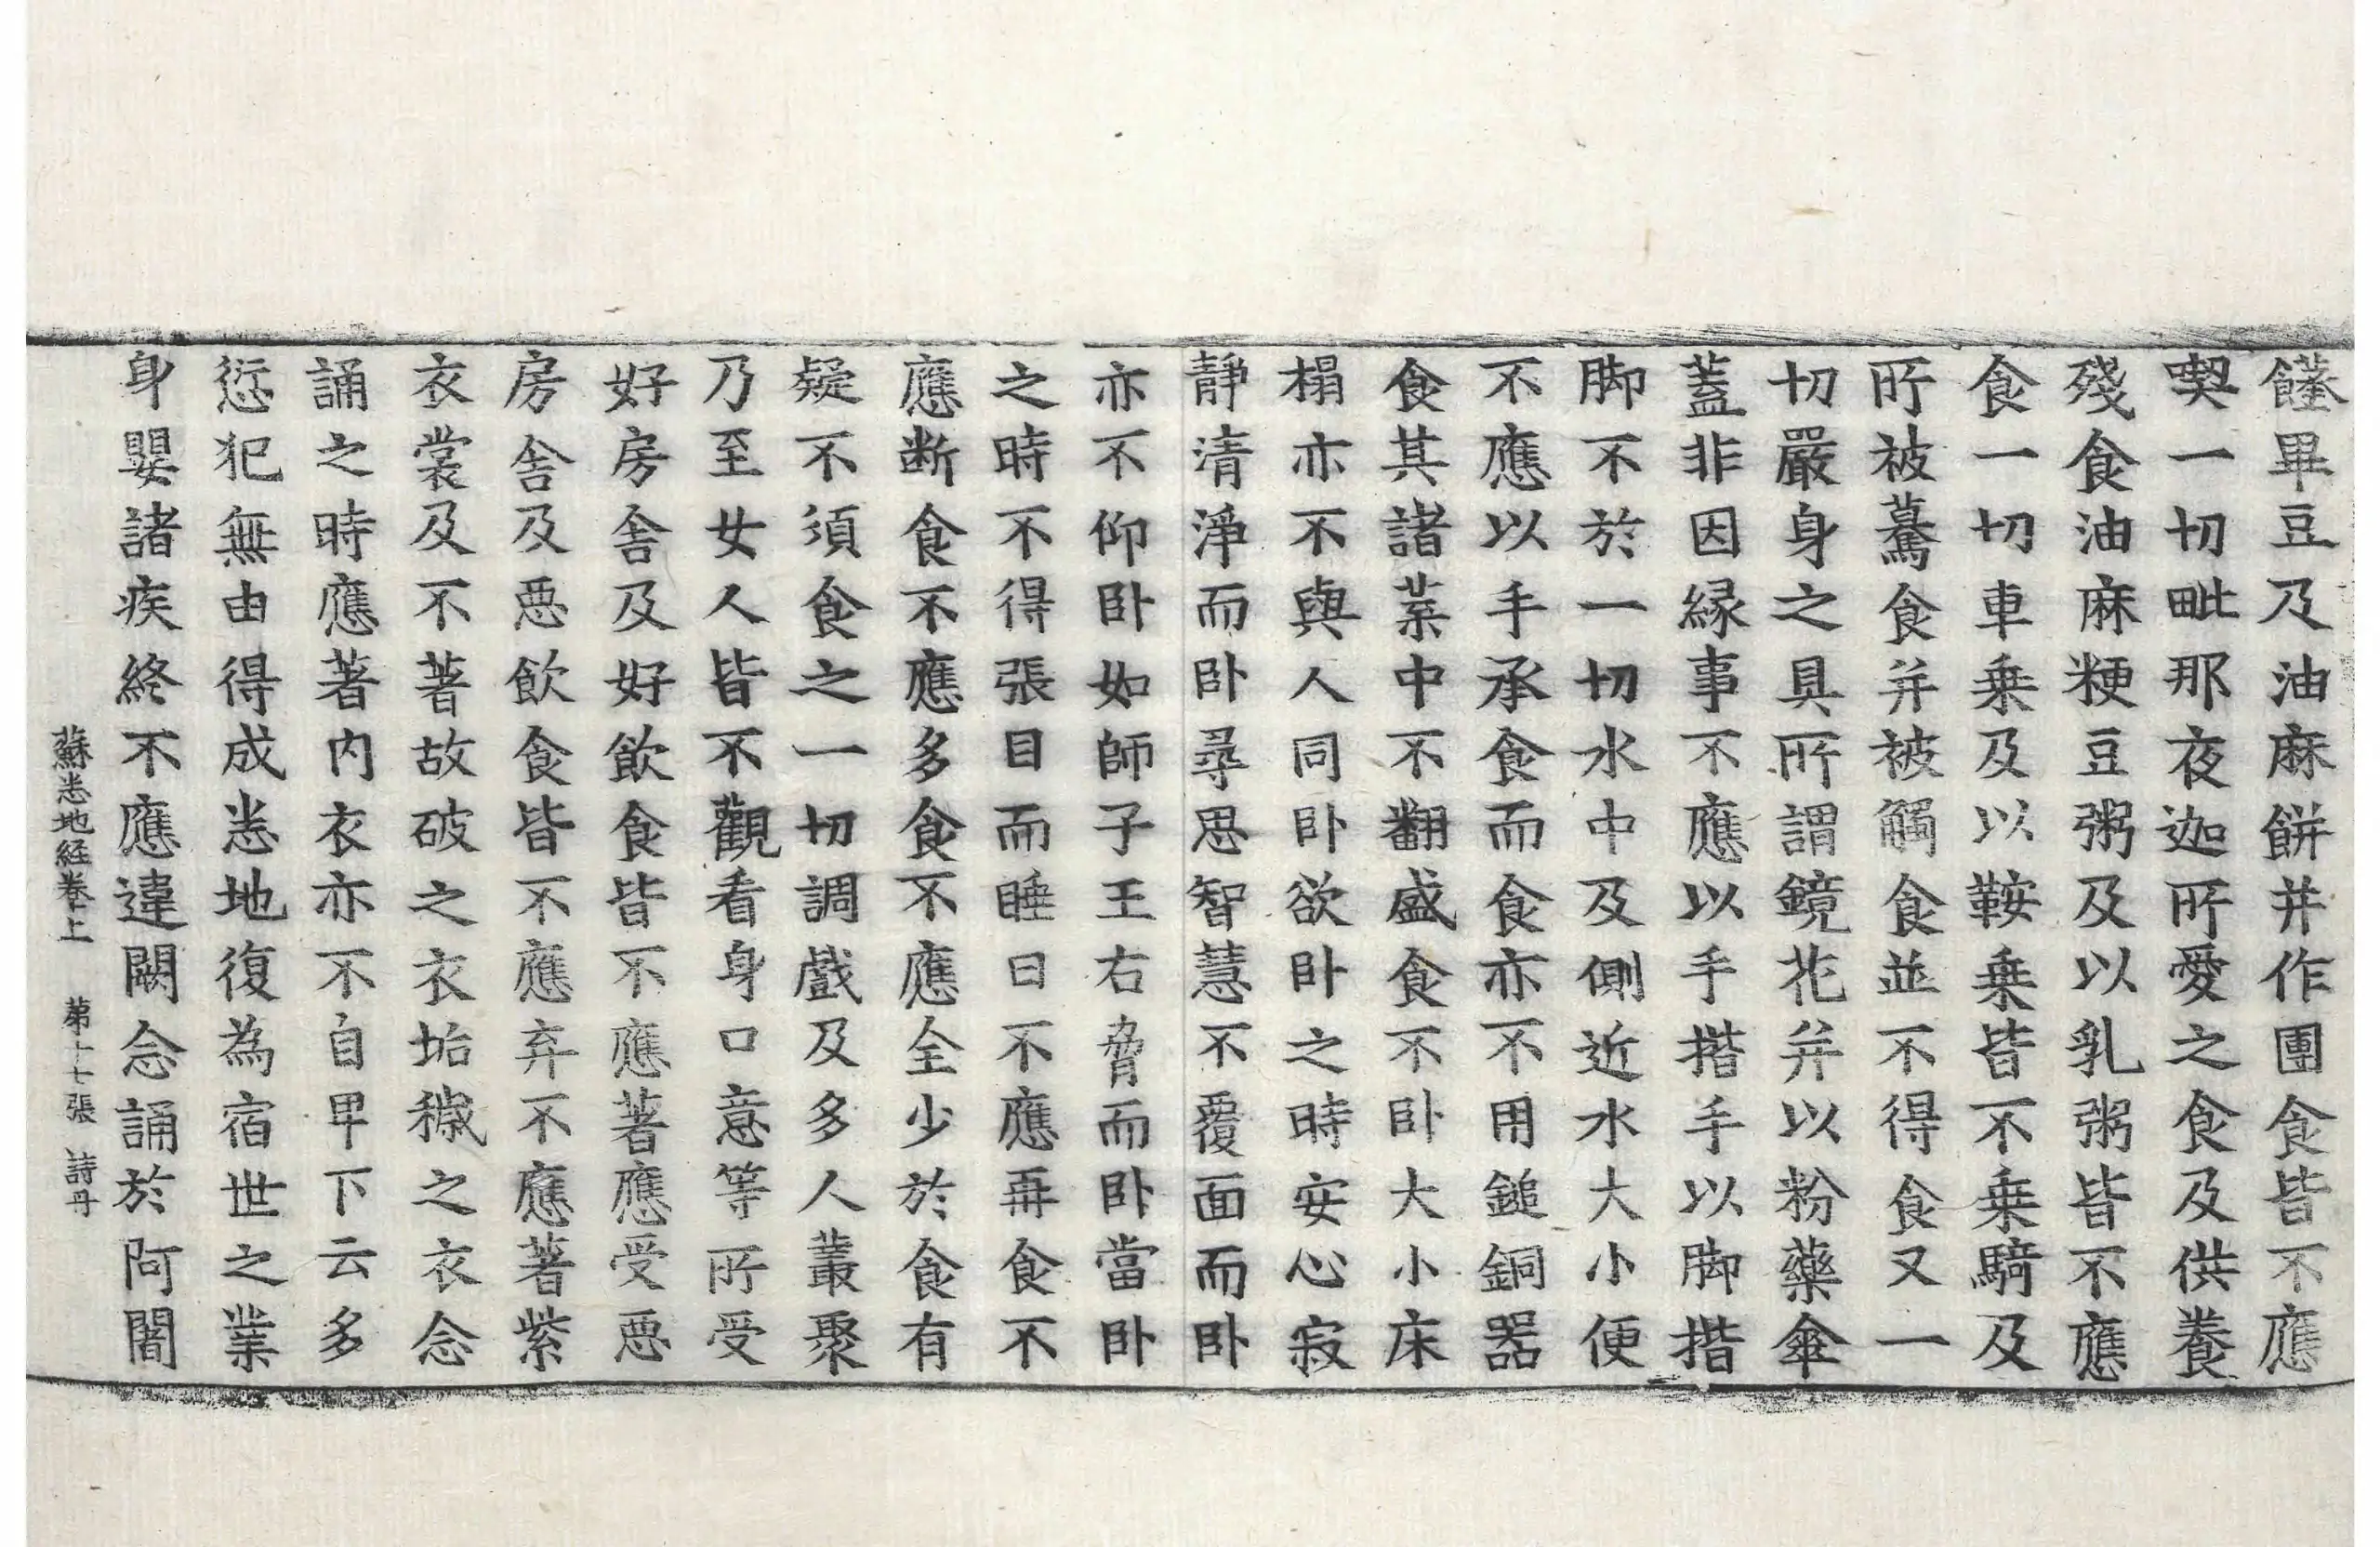 饆畢豆及油麻餅并作團食皆不應
喫一切毗那夜迦所愛之食及供養
殘食油麻粳豆粥及以乳粥皆不應
食一切車乗及以鞍乗皆不乗騎及
所被驀食并被觸食並不得食又一
切嚴身之具所謂鏡花并以粉藥傘
蓋非因縁事不應以手揩手以脚揩
脚不於一切水中及側近水大小便
不應以手承食而食亦不用鎚銅器
食其諸菜中不翻盛食不卧大小床
榻亦不與人同卧欲卧之時安心寂
靜清淨而卧尋思智慧不覆面而卧
亦不仰卧如師子王右脅而卧當卧
之時不得張目而睡日不應再食不
應断食不應多食不應全少於食有
疑不須食之一切調戲及多人叢聚
乃至女人皆不觀看身口意等所受
好房舍及好飲食皆不應著應受惡
房舍及惡飲食皆不應弃不應著紫
衣裳及不著故破之衣垢穢之衣念
誦之時應著内衣亦不自早下云多
愆犯無由得成悉地復為宿世之業
身嬰諸疾終不應違闕念誦於阿闍
蘇悉地経卷上 第十七張 詩丹